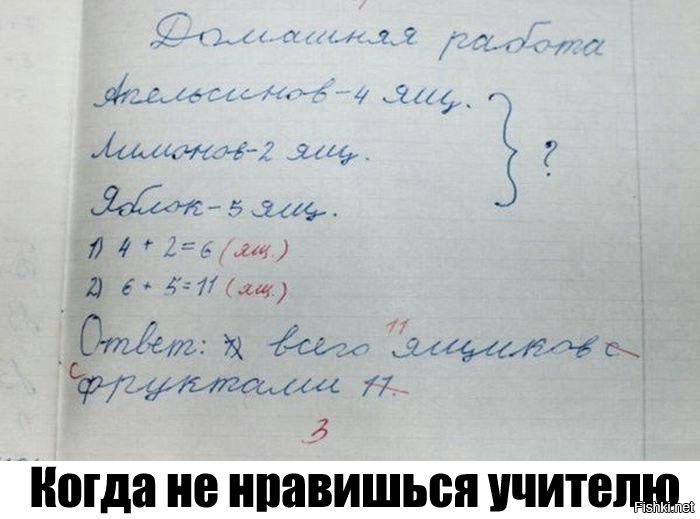 Домашняя работа
Апельсинов-4 ящ.
Лимонов-2 ящ. ?
Яблок-5 ящ.
1) 4 + 2 = 6 (ящ.)
2) 6 + 5 = 11 (ящ.)
11
Ответ: всего ящиков с
с фруктами 11.
3
Когда не нравишься учителю
Fishki.net